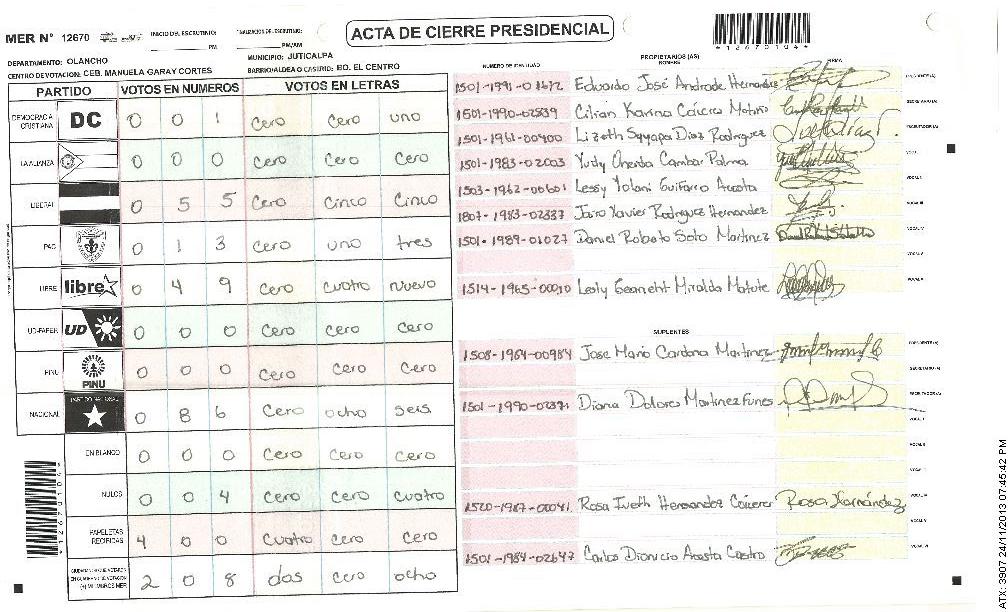 MER N° 12670
INICIO DEL ESCRUTINIO: PM
FINALIZACION DEL ESCRUTINIO: PM/AM
ACTA DE CIERRE PRESIDENCIAL
*12670104*
DEPARTAMENTO: OLANCHO
MUNICIPIO: JUTICALPA
CENTRO DE VOTACION: CEB. MANUELA GARAY CORTES
BARRIO/ALDEA O CASERIO: BO. EL CENTRO
PARTIDO VOTOS EN NUMEROS VOTOS EN LETRAS
DEMOCRACIA CRISTIANA DC 0 0 1 Cero Cero uno
LA ALIANZA 0 0 0 Cero Cero Cero
LIBERAL 0 5 5 Cero Cinco Cinco
PAC 0 1 3 Cero uno tres
LIBRE libre 0 4 9 Cero cuatro nuevo
UD-FAPER UD 0 0 0 Cero Cero Cero
PINU PINU 0 0 0 Cero Cero Cero
NACIONAL PARTIDO NACIONAL 0 8 6 Cero ocho seis
EN BLANCO 0 0 0 Cero Cero Cero
NULOS 0 0 4 Cero Cero Cuatro
PAPELETAS RECIBIDAS 4 0 0 Cuatro Cero Cero
2 0 8 dos Cero ocho
NUMERO DE IDENTIDAD
PROPIETARIOS (AS)
NOMBRE
FIRMA
1501-1991-01672 Eduardo José Andrade Hernandez PRESIDENTE(A)
1501-1990-02839 Cilian Karina Cáceres Matute SECRETARIO(A)
1501-1961-00400 Lizeth Suyapa Diaz Rodriguez ESCRUTADOR(A)
1501-1983-02003 Yudy Onenda Cambar Palma VOCAL I
1503-1962-00601 Lessy Yolani Guifarro Acosta VOCAL II
1807-1983-02337 Jairo Xavier Rodriguez Hernandez VOCAL III
1501-1989-01027 Daniel Roberto Soto Martinez VOCAL IV
VOCAL V
1514-1965-00010 Lesly Geanneht Miralda Matute VOCAL VI
SUPLENTES
1508-1964-00984 Jose Mario Cardona Martinez PRESIDENTE(A)
SECRETARIO(A)
1501-1990-02371 Diana Dolores Martinez Funes ESCRUTADOR(A)
VOCAL I
VOCAL II
VOCAL III
1520-1987-00041 Rosa Iveth Hernandez Cáceres Rosa Hernández VOCAL IV
VOCAL V
1501-1984-02647 Carlos Dionicio Acosta Castro VOCAL VI
*12670104*
ATX: 3907 24/11/2013 07:45:42 PM